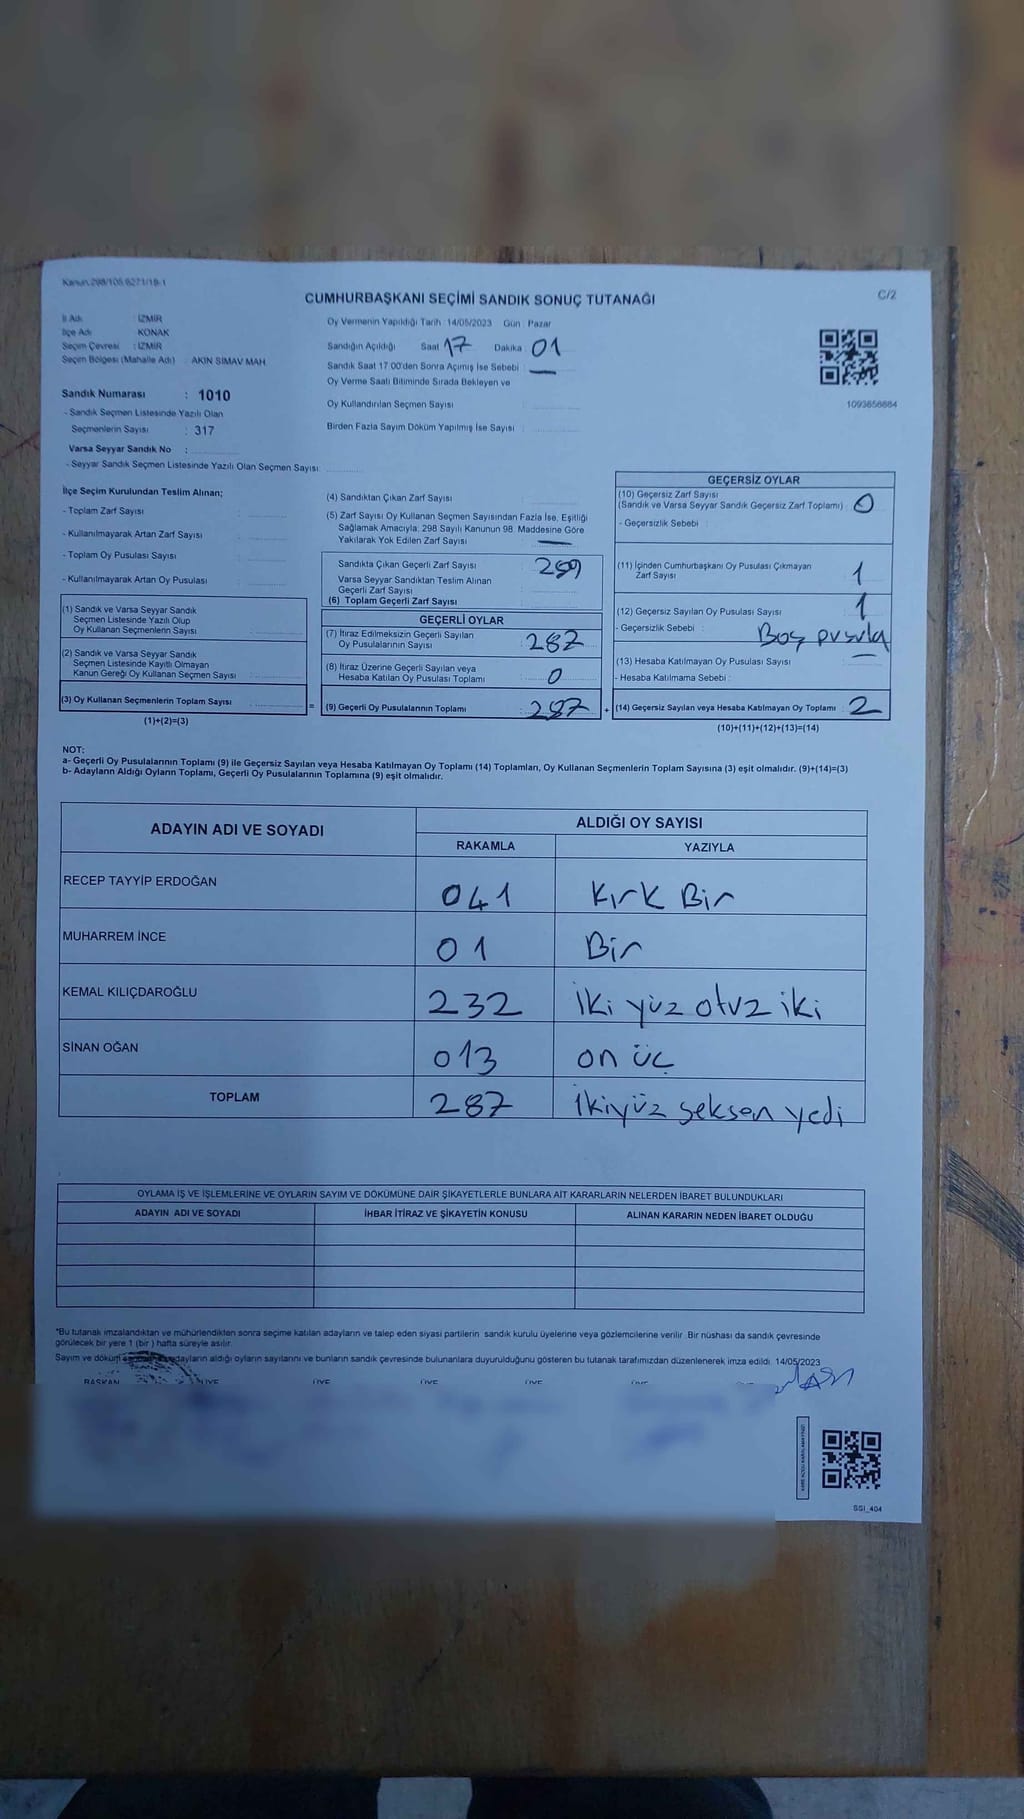 Kanun:298/105.6271/19-1
C/2
CUMHURBAŞKANI SEÇİMİ SANDIK SONUÇ TUTANAĞI
İl Adı : İZMİR
İlçe Adı : KONAK
Seçim Çevresi : İZMİR
Seçim Bölgesi (Mahalle Adı) : AKIN SİMAV MAH.
Oy Vermenin Yapıldığı Tarih :14/05/2023 Gün : Pazar
Sandığın Açıldığı Saat 17 Dakika 01
Sandık Saat 17.00'den Sonra Açımış İse Sebebi : —
Oy Verme Saati Bitiminde Sırada Bekleyen ve
Oy Kullandırılan Seçmen Sayısı :
Birden Fazla Sayım Döküm Yapılmış İse Sayısı :
1093656684
Sandık Numarası : 1010
- Sandık Seçmen Listesinde Yazılı Olan
Seçmenlerin Sayısı : 317
Varsa Seyyar Sandık No :
- Seyyar Sandık Seçmen Listesinde Yazılı Olan Seçmen Sayısı:
İlçe Seçim Kurulundan Teslim Alınan;
- Toplam Zarf Sayısı :
- Kullanılmayarak Artan Zarf Sayısı :
- Toplam Oy Pusulası Sayısı :
- Kullanılmayarak Artan Oy Pusulası :
(1) Sandık ve Varsa Seyyar Sandık
Seçmen Listesinde Yazılı Olup
Oy Kullanan Seçmenlerin Sayısı :
(2) Sandık ve Varsa Seyyar Sandık
Seçmen Listesinde Kayıtlı Olmayan
Kanun Gereği Oy Kullanan Seçmen Sayısı :
(3) Oy Kullanan Seçmenlerin Toplam Sayısı :
(1)+(2)=(3)
=
(4) Sandıktan Çıkan Zarf Sayısı :
(5) Zarf Sayısı Oy Kullanan Seçmen Sayısından Fazla İse, Eşitliği
Sağlamak Amacıyla; 298 Sayılı Kanunun 98. Maddesine Göre
Yakılarak Yok Edilen Zarf Sayısı : —
Sandıkta Çıkan Geçerli Zarf Sayısı : 289
Varsa Seyyar Sandıktan Teslim Alınan
Geçerli Zarf Sayısı :
(6) Toplam Geçerli Zarf Sayısı :
GEÇERLİ OYLAR
(7) İtiraz Edilmeksizin Geçerli Sayılan
Oy Pusulalarının Sayısı : 287
(8) İtiraz Üzerine Geçerli Sayılan veya
Hesaba Katılan Oy Pusulası Toplamı : 0
(9) Geçerli Oy Pusulalarının Toplamı : 287
+
GEÇERSİZ OYLAR
(10) Geçersiz Zarf Sayısı
(Sandık ve Varsa Seyyar Sandık Geçersiz Zarf Toplamı) : 0
- Geçersizlik Sebebi :
(11) İçinden Cumhurbaşkanı Oy Pusulası Çıkmayan
Zarf Sayısı : 1
(12) Geçersiz Sayılan Oy Pusulası Sayısı : 1
- Geçersizlik Sebebi : Boş pusula
(13) Hesaba Katılmayan Oy Pusulası Sayısı : —
- Hesaba Katılmama Sebebi :
(14) Geçersiz Sayılan veya Hesaba Katılmayan Oy Toplamı : 2
(10)+(11)+(12)+(13)=(14)
NOT:
a- Geçerli Oy Pusulalarının Toplamı (9) ile Geçersiz Sayılan veya Hesaba Katılmayan Oy Toplamı (14) Toplamları, Oy Kullanan Seçmenlerin Toplam Sayısına (3) eşit olmalıdır. (9)+(14)=(3)
b- Adayların Aldığı Oyların Toplamı, Geçerli Oy Pusulalarının Toplamına (9) eşit olmalıdır.
ADAYIN ADI VE SOYADI
ALDIĞI OY SAYISI
RAKAMLA YAZIYLA
RECEP TAYYİP ERDOĞAN 041 Kırk Bir
MUHARREM İNCE 01 Bir
KEMAL KILIÇDAROĞLU 232 İki yüz otuz iki
SİNAN OĞAN 013 on üç
TOPLAM 287 İkiyüz seksen yedi
OYLAMA İŞ VE İŞLEMLERİNE VE OYLARIN SAYIM VE DÖKÜMÜNE DAİR ŞİKAYETLERLE BUNLARA AİT KARARLARIN NELERDEN İBARET BULUNDUKLARI
ADAYIN ADI VE SOYADI İHBAR İTİRAZ VE ŞİKAYETİN KONUSU ALINAN KARARIN NEDEN İBARET OLDUĞU
*Bu tutanak imzalandıktan ve mühürlendikten sonra seçime katılan adayların ve talep eden siyasi partilerin sandık kurulu üyelerine veya gözlemcilerine verilir. Bir nüshası da sandık çevresinde
görülecek bir yere 1 (bir ) hafta süreyle asılır.
Sayım ve döküm adayların aldığı oyların sayılarını ve bunların sandık çevresinde bulunanlara duyurulduğunu gösteren bu tutanak tarafımızdan düzenlenerek imza edildi. 14/05/2023
BAŞKAN ÜYE ÜYE ÜYE ÜYE ÜYE
SSI_404